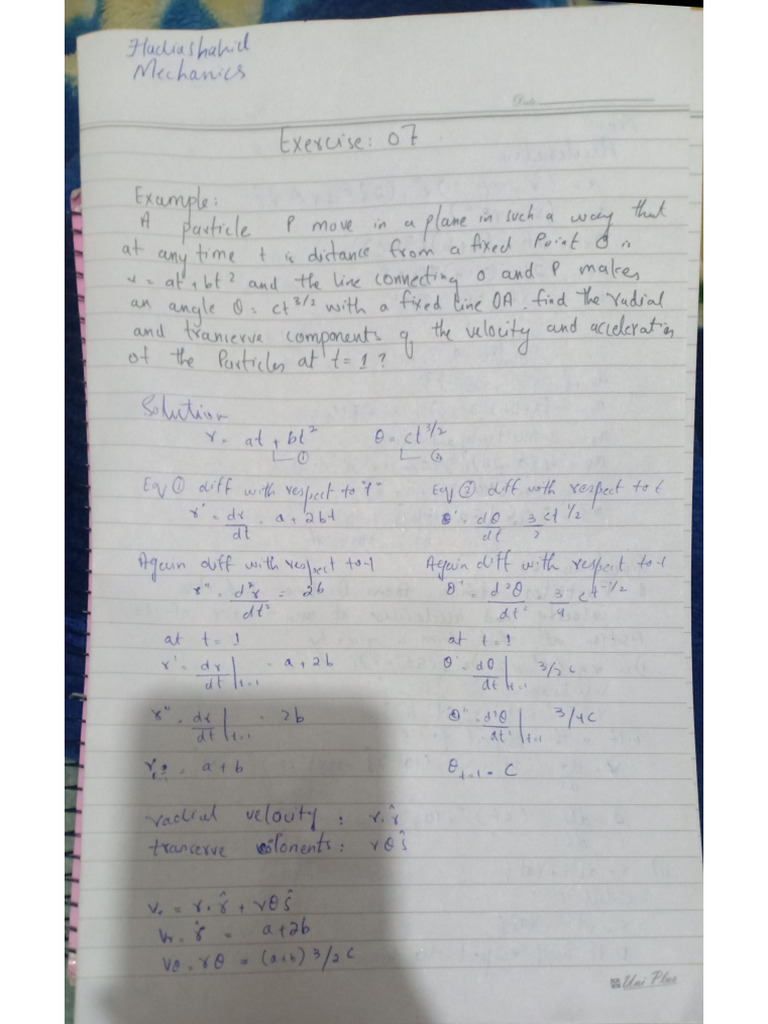 Hadiashahid
Mechanics
Date:
Exercise: 07
Example:
A particle P move in a plane in such a way that
at any time t is distance from a fixed Point O is
r = at + bt² and the line connecting o and P makes
an angle θ = ct^3/2 with a fixed line OA. find the radial
and trancerve components of the velocity and acceleration
of the Particles at t = 1 ?
Solution
r = at + bt² ① θ = ct^3/2 ②
Eq ① diff with respect to "t" Eq ② diff with respect to t
r' = dr/dt = a + 2bt θ' = dθ/dt = 3/2 ct^1/2
Again diff with respect to t Again diff with respect to t
r'' = d²r/dt² = 2b θ' = d²θ/dt² = 3/4 ct^-1/2
at t = 1 at t = 1
r' = dr/dt |t=1 = a + 2b θ' = dθ/dt |t=1 3/2 c
r'' = dr/dt |t=1 = 2b θ'' = d²θ/dt² |t=1 3/4 c
= a + b θt=1 = C
radial velocity : r.r̂
trancerve : rθŝ
v. = r.r̂ + rθŝ
= a + 2b
vθ = rθ = (a+b) 3/2 C
Uni Plus